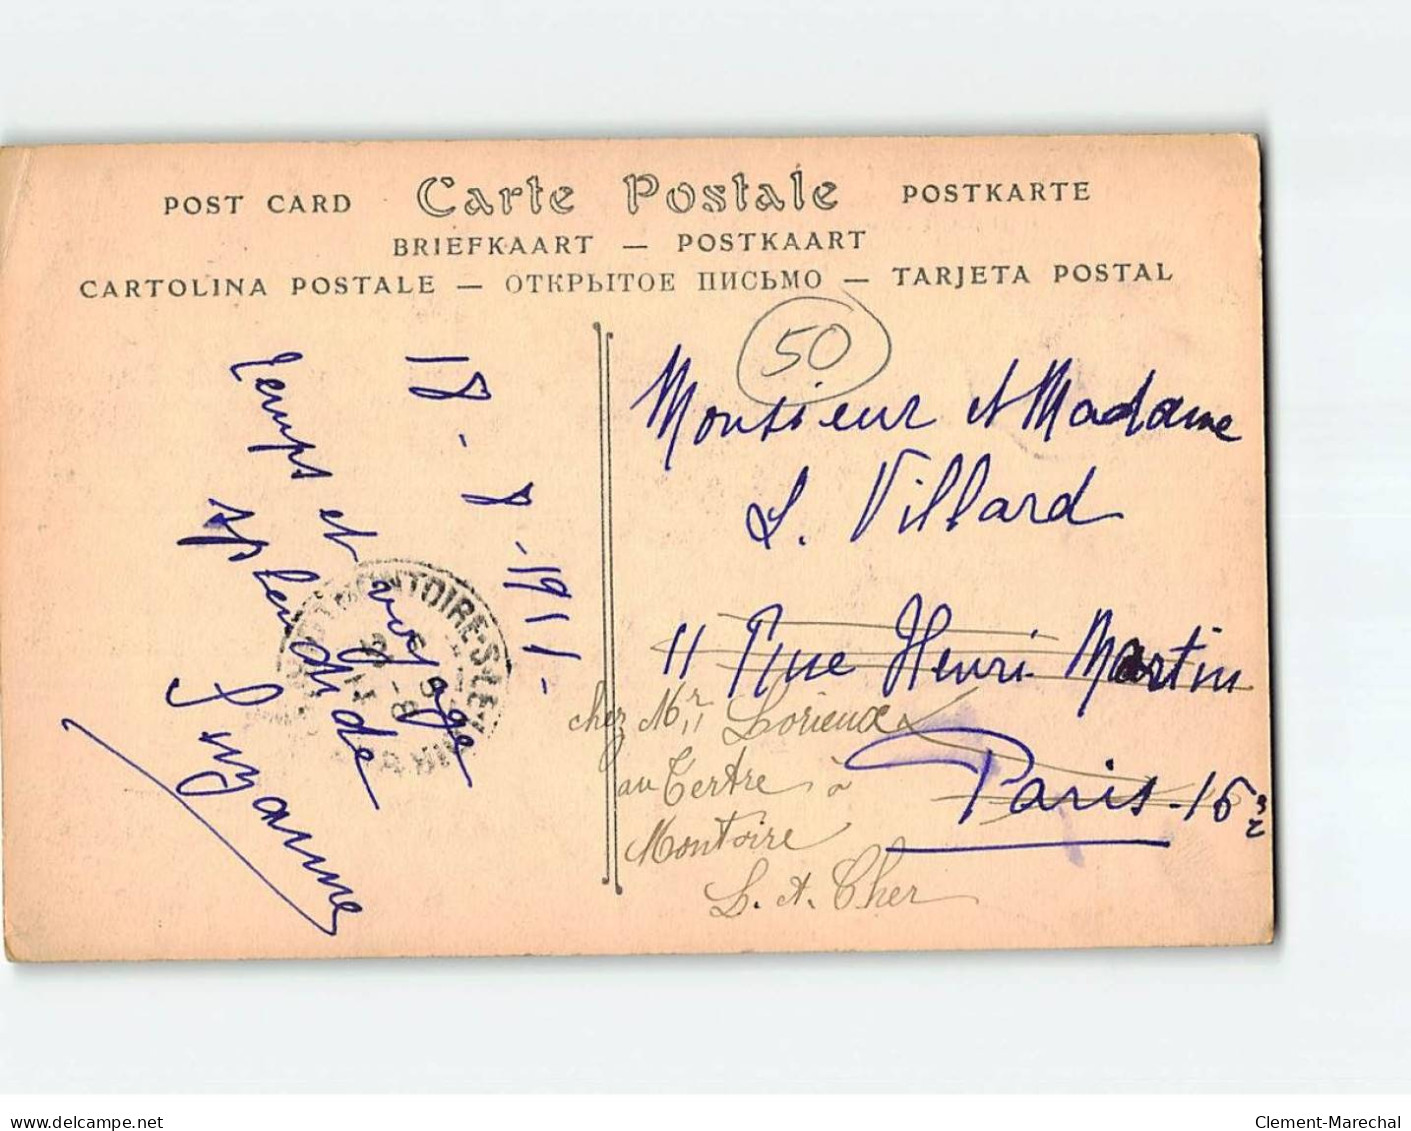 POST CARD Carte Postale POSTKARTE
BRIEFKAART — POSTKAART
CARTOLINA POSTALE — ОТКРЫТОЕ ПИСЬМО — TARJETA POSTAL
50
18-8-1911-
Temps et voyage
splendide
Suzanne
MONTOIRE-S-LE-
Monsieur et Madame
L. Villard
11 Rue Henri Martin
Paris-16
chez Mr Lorieux
au Tertre à
Montoire
L. et. Cher
delcampe.net
Clement-Marechal